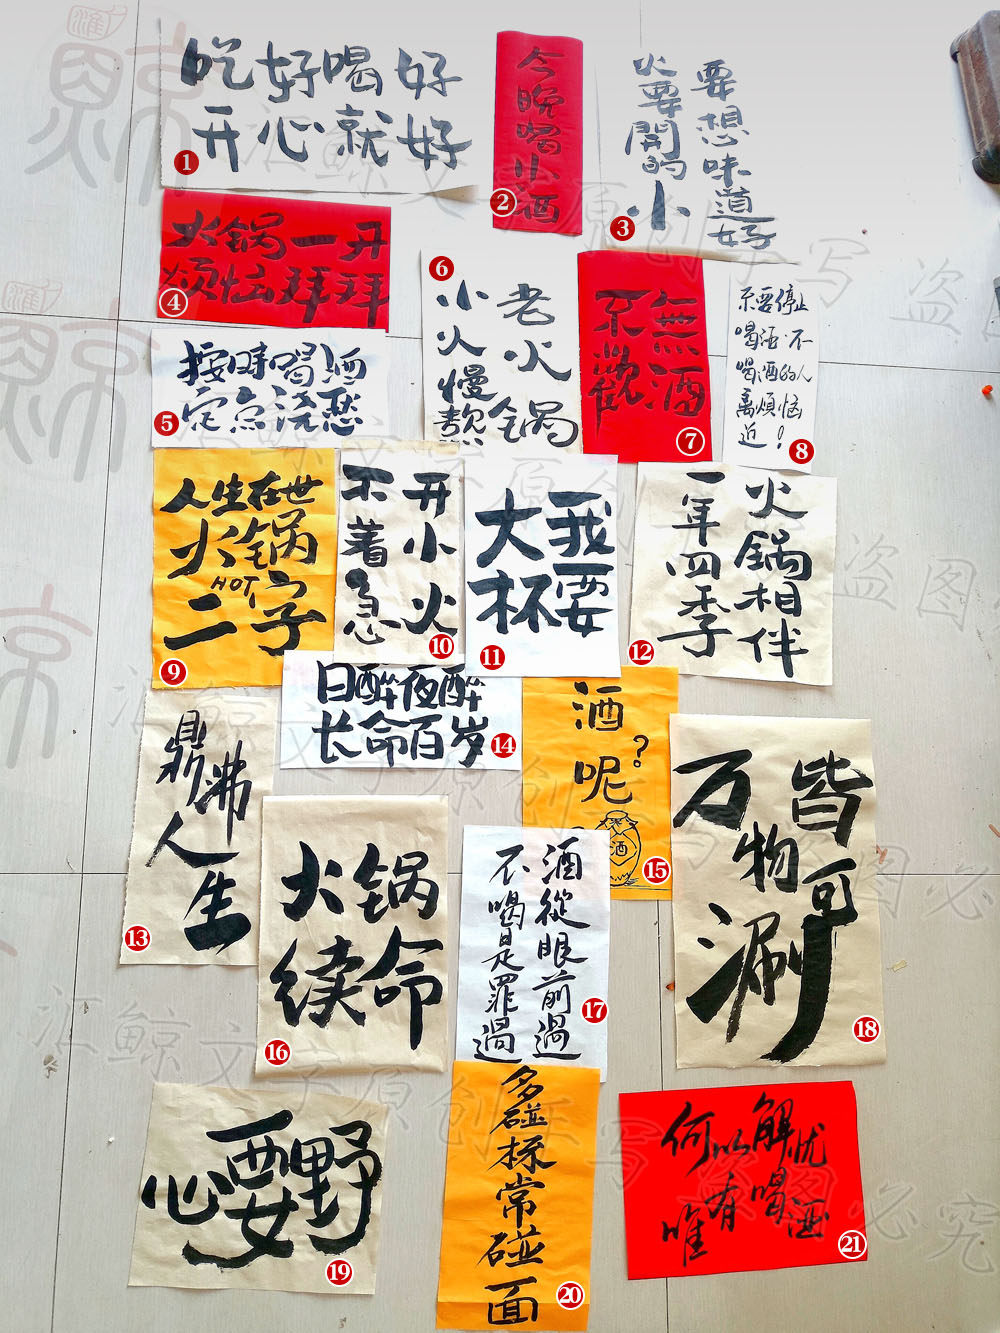 吃好喝好
开心就好
1
今晚喝小酒
2
要想味道好
火要開的小
3
火锅一开
烦恼拜拜
4
按时喝酒
定点浇愁
5
6
老火锅
小火慢熬
無酒
不歡
7
不要停止
喝酒·不
喝酒的人
离煩恼
近！
8
人生在世
火锅
HOT
二字
9
开小火
不着急
10
我要
大杯
11
火鍋相伴
一年四季
12
鼎沸
人生
13
日醉夜醉
长命百岁
14
酒
呢？
酒
15
火锅
续命
16
酒從眼前過
不喝是罪過
17
万物皆可涮
18
心要野
19
多碰杯常碰面
20
何以解忧
唯有喝酒
21
汇鲸文字原创手写 盗图必究